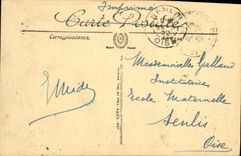 Imprimé
Carte Postale
Correspondance
OISE
Mesdemoiselles Galland
Institutrices
Ecole Maternelle
Senlis
Oise